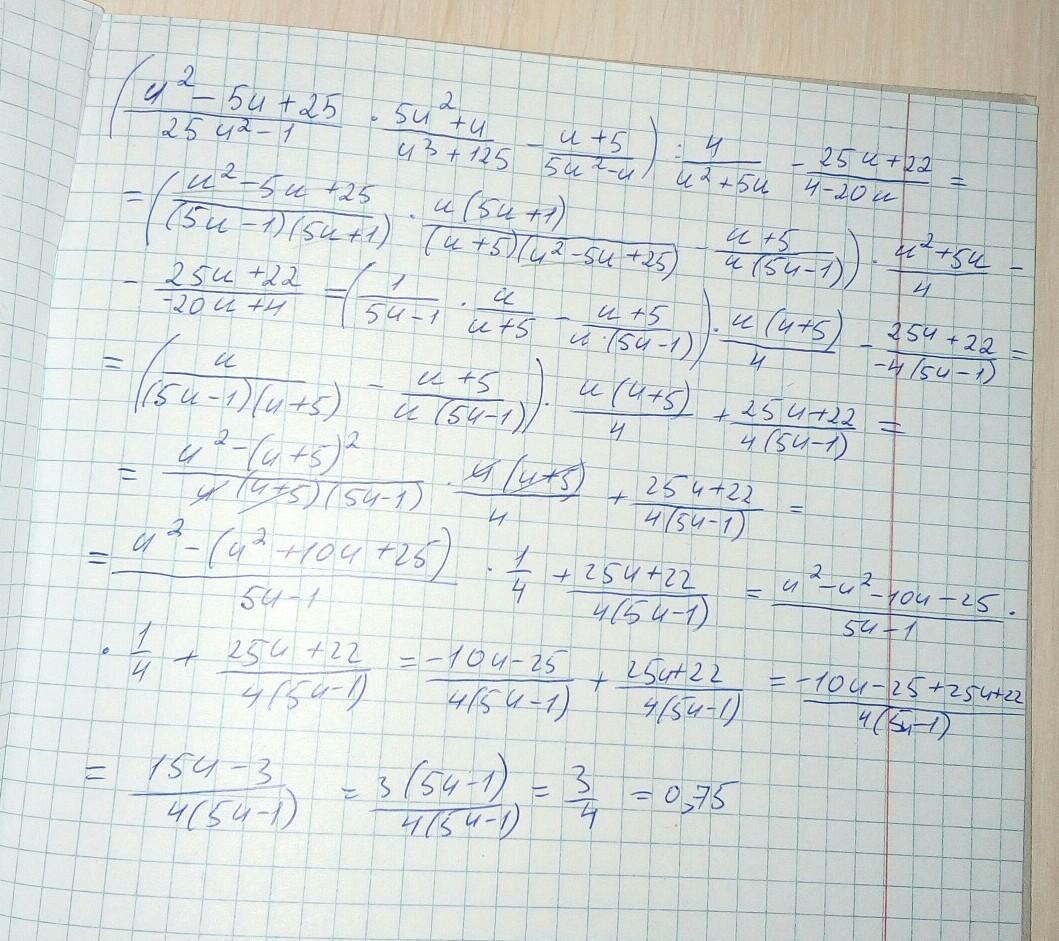 (u² - 5u + 25)/(25u² - 1) · (5u² + u)/(u³ + 125) - (u + 5)/(5u² - u)) : 4/(u² + 5u) - (25u + 22)/(4 - 20u) =
= ((u² - 5u + 25)/((5u - 1)(5u + 1)) · u(5u + 1)/((u + 5)(u² - 5u + 25)) - (u + 5)/(u(5u - 1))) · (u² + 5u)/4 -
- (25u + 22)/(-20u + 4) = (1/(5u - 1) · u/(u + 5) - (u + 5)/(u·(5u - 1))) · u(u + 5)/4 - (25u + 22)/(-4(5u - 1)) =
= (u/((5u - 1)(u + 5)) - (u + 5)/(u(5u - 1))) · u(u + 5)/4 + (25u + 22)/(4(5u - 1)) =
= (u² - (u + 5)²)/(u(u + 5)(5u - 1)) · u(u + 5)/4 + (25u + 22)/(4(5u - 1)) =
= (u² - (u² + 10u + 25))/(5u - 1) · 1/4 + (25u + 22)/(4(5u - 1)) = (u² - u² - 10u - 25)/(5u - 1) ·
· 1/4 + (25u + 22)/(4(5u - 1)) = (-10u - 25)/(4(5u - 1)) + (25u + 22)/(4(5u - 1)) = (-10u - 25 + 25u + 22)/(4(5u - 1))
= (15u - 3)/(4(5u - 1)) = 3(5u - 1)/(4(5u - 1)) = 3/4 = 0,75